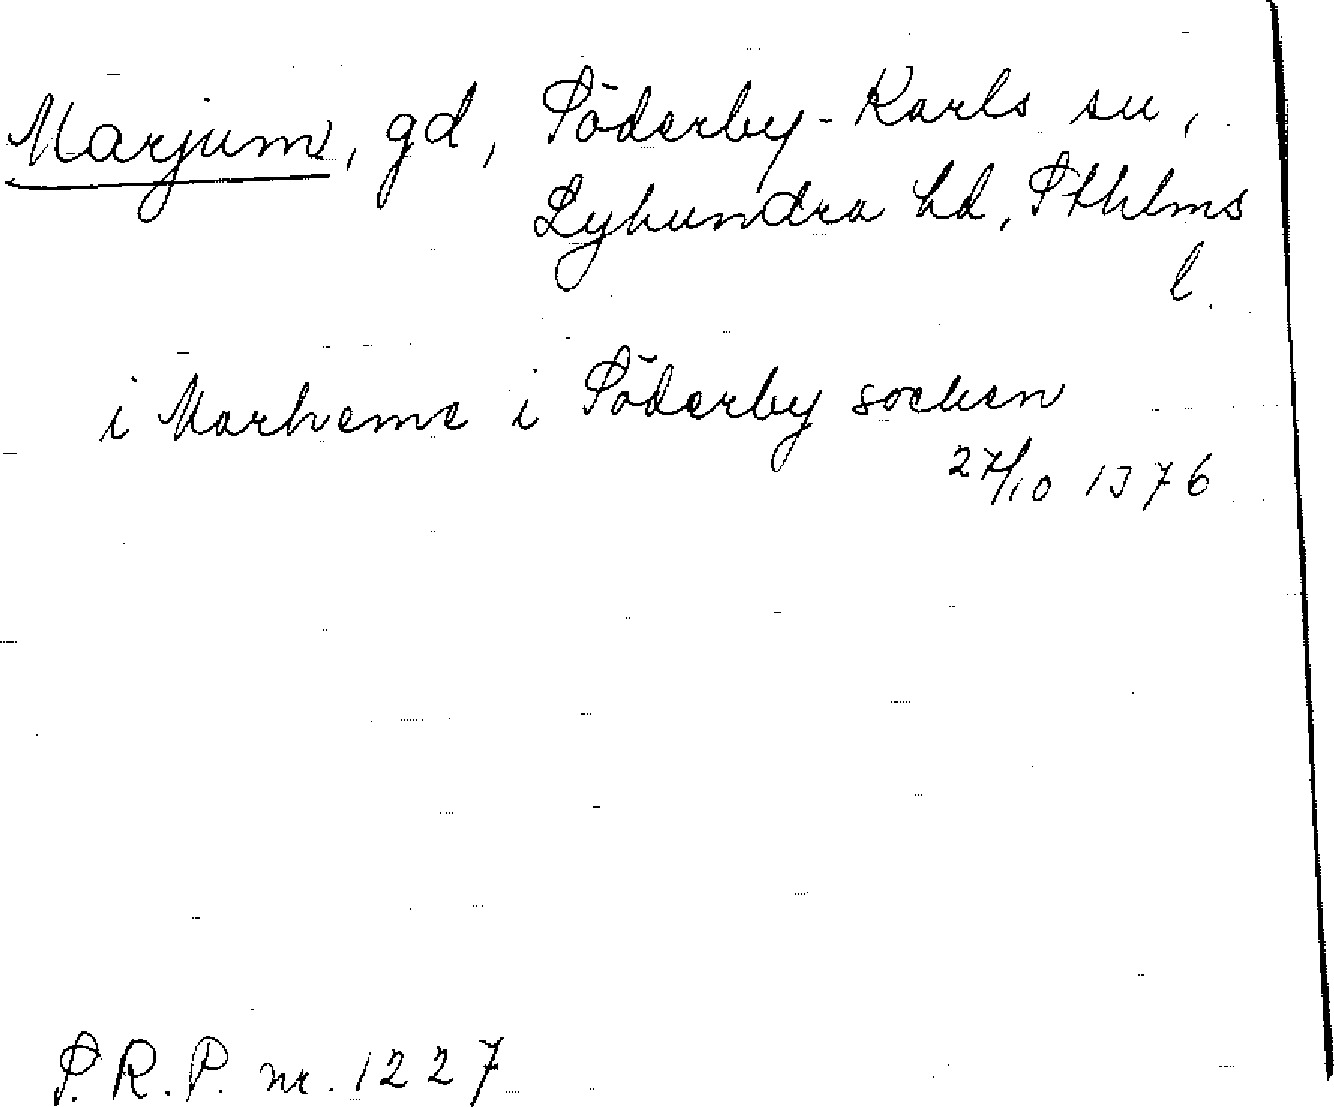 Marjum, gd, Söderby-Karls sn,
Lyhundra hd, Sthlms
l.
i Marheme i Söderby socken
27/10 1376
S.R.P. nr. 1227